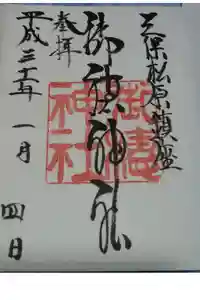 三保松原鎮座
御穂神社
奉拝
平成三十一年 一月 四日
御穂神社